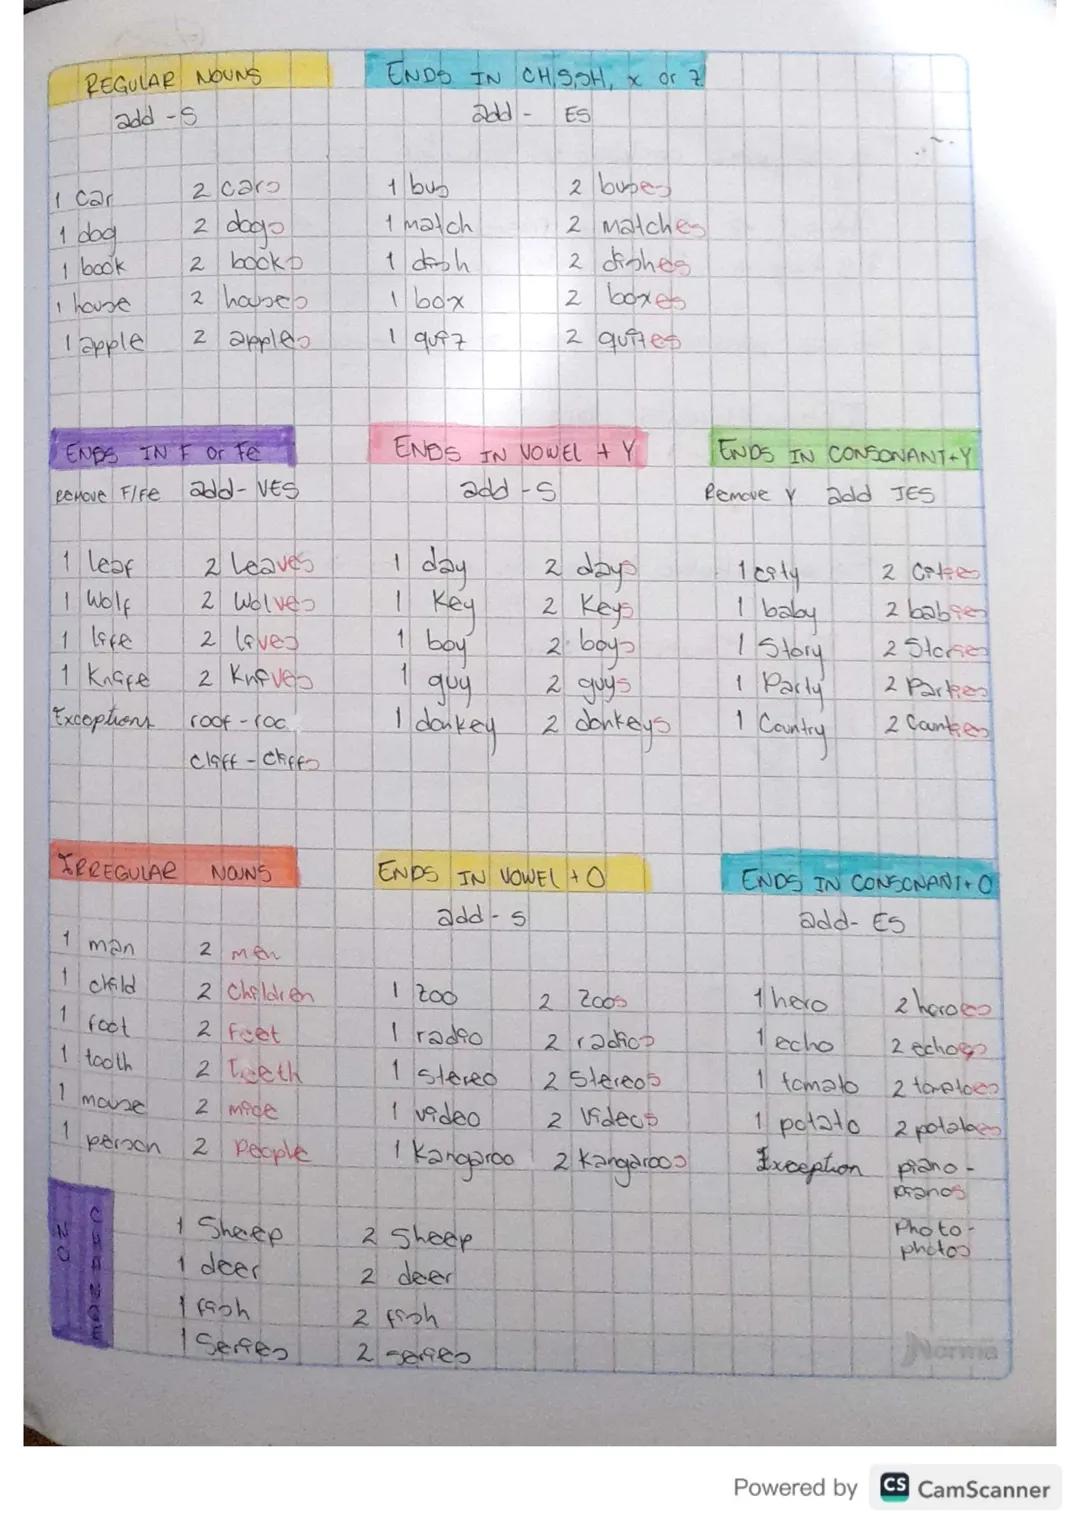 REGULAR NOUNS
add -S
1 car 2 cars
1 dog 2 dogs
1 book 2 books
1 house 2 houses
1 apple 2 apples
ENDS IN CH,S,SH, x or z
add - ES
1 bus 2 buses
1 match 2 matches
1 dish 2 dishes
1 box 2 boxes
1 quiz
ENDS IN F or Fe
Remove F/Fe add- VES
1 leaf 2 Leaves
1 Wolf 2 Wolves
1 life 2 lives
1 Knife 2 Knives
Exceptions roof -
cliff - cliffs
ENDS IN VOWEL + Y
add -S
1 day 2 days
1 Key 2 Keys
1 boy 2 boys
1 guy 2 guys
1 donkey 2 donkeys
ENDS IN CONSONANT+Y
Remove Y add IES
1 city 2 Cities
1 baby 2 babies
1 Story 2 Stories
1 Party 2 Parties
1 Country
IRREGULAR NOUNS
1 man 2 men
1 child 2 Children
1 foot 2 Feet
1 tooth 2 Teeth
1 mouse 2 mice
1 person 2 People
ENDS IN VOWEL + O
add - s
1 zoo 2 Zoos
1 radio 2 radios
1 Stereo 2 Stereos
1 video 2 Videos
1 Kangaroo 2 Kangaroos
ENDS IN CONSONANT+O
add- ES
1 hero 2 heroes
1 echo 2 echoes
1 tomato 2 tomatoes
1 potato 2 potatoes
Exception piano -
pianos
Photo -
photos
NO CHANGE
1 Sheep 2 Sheep
1 deer 2 deer
1 fish 2 fish
1 Series 2 series
Norma
Powered by CS CamScanner